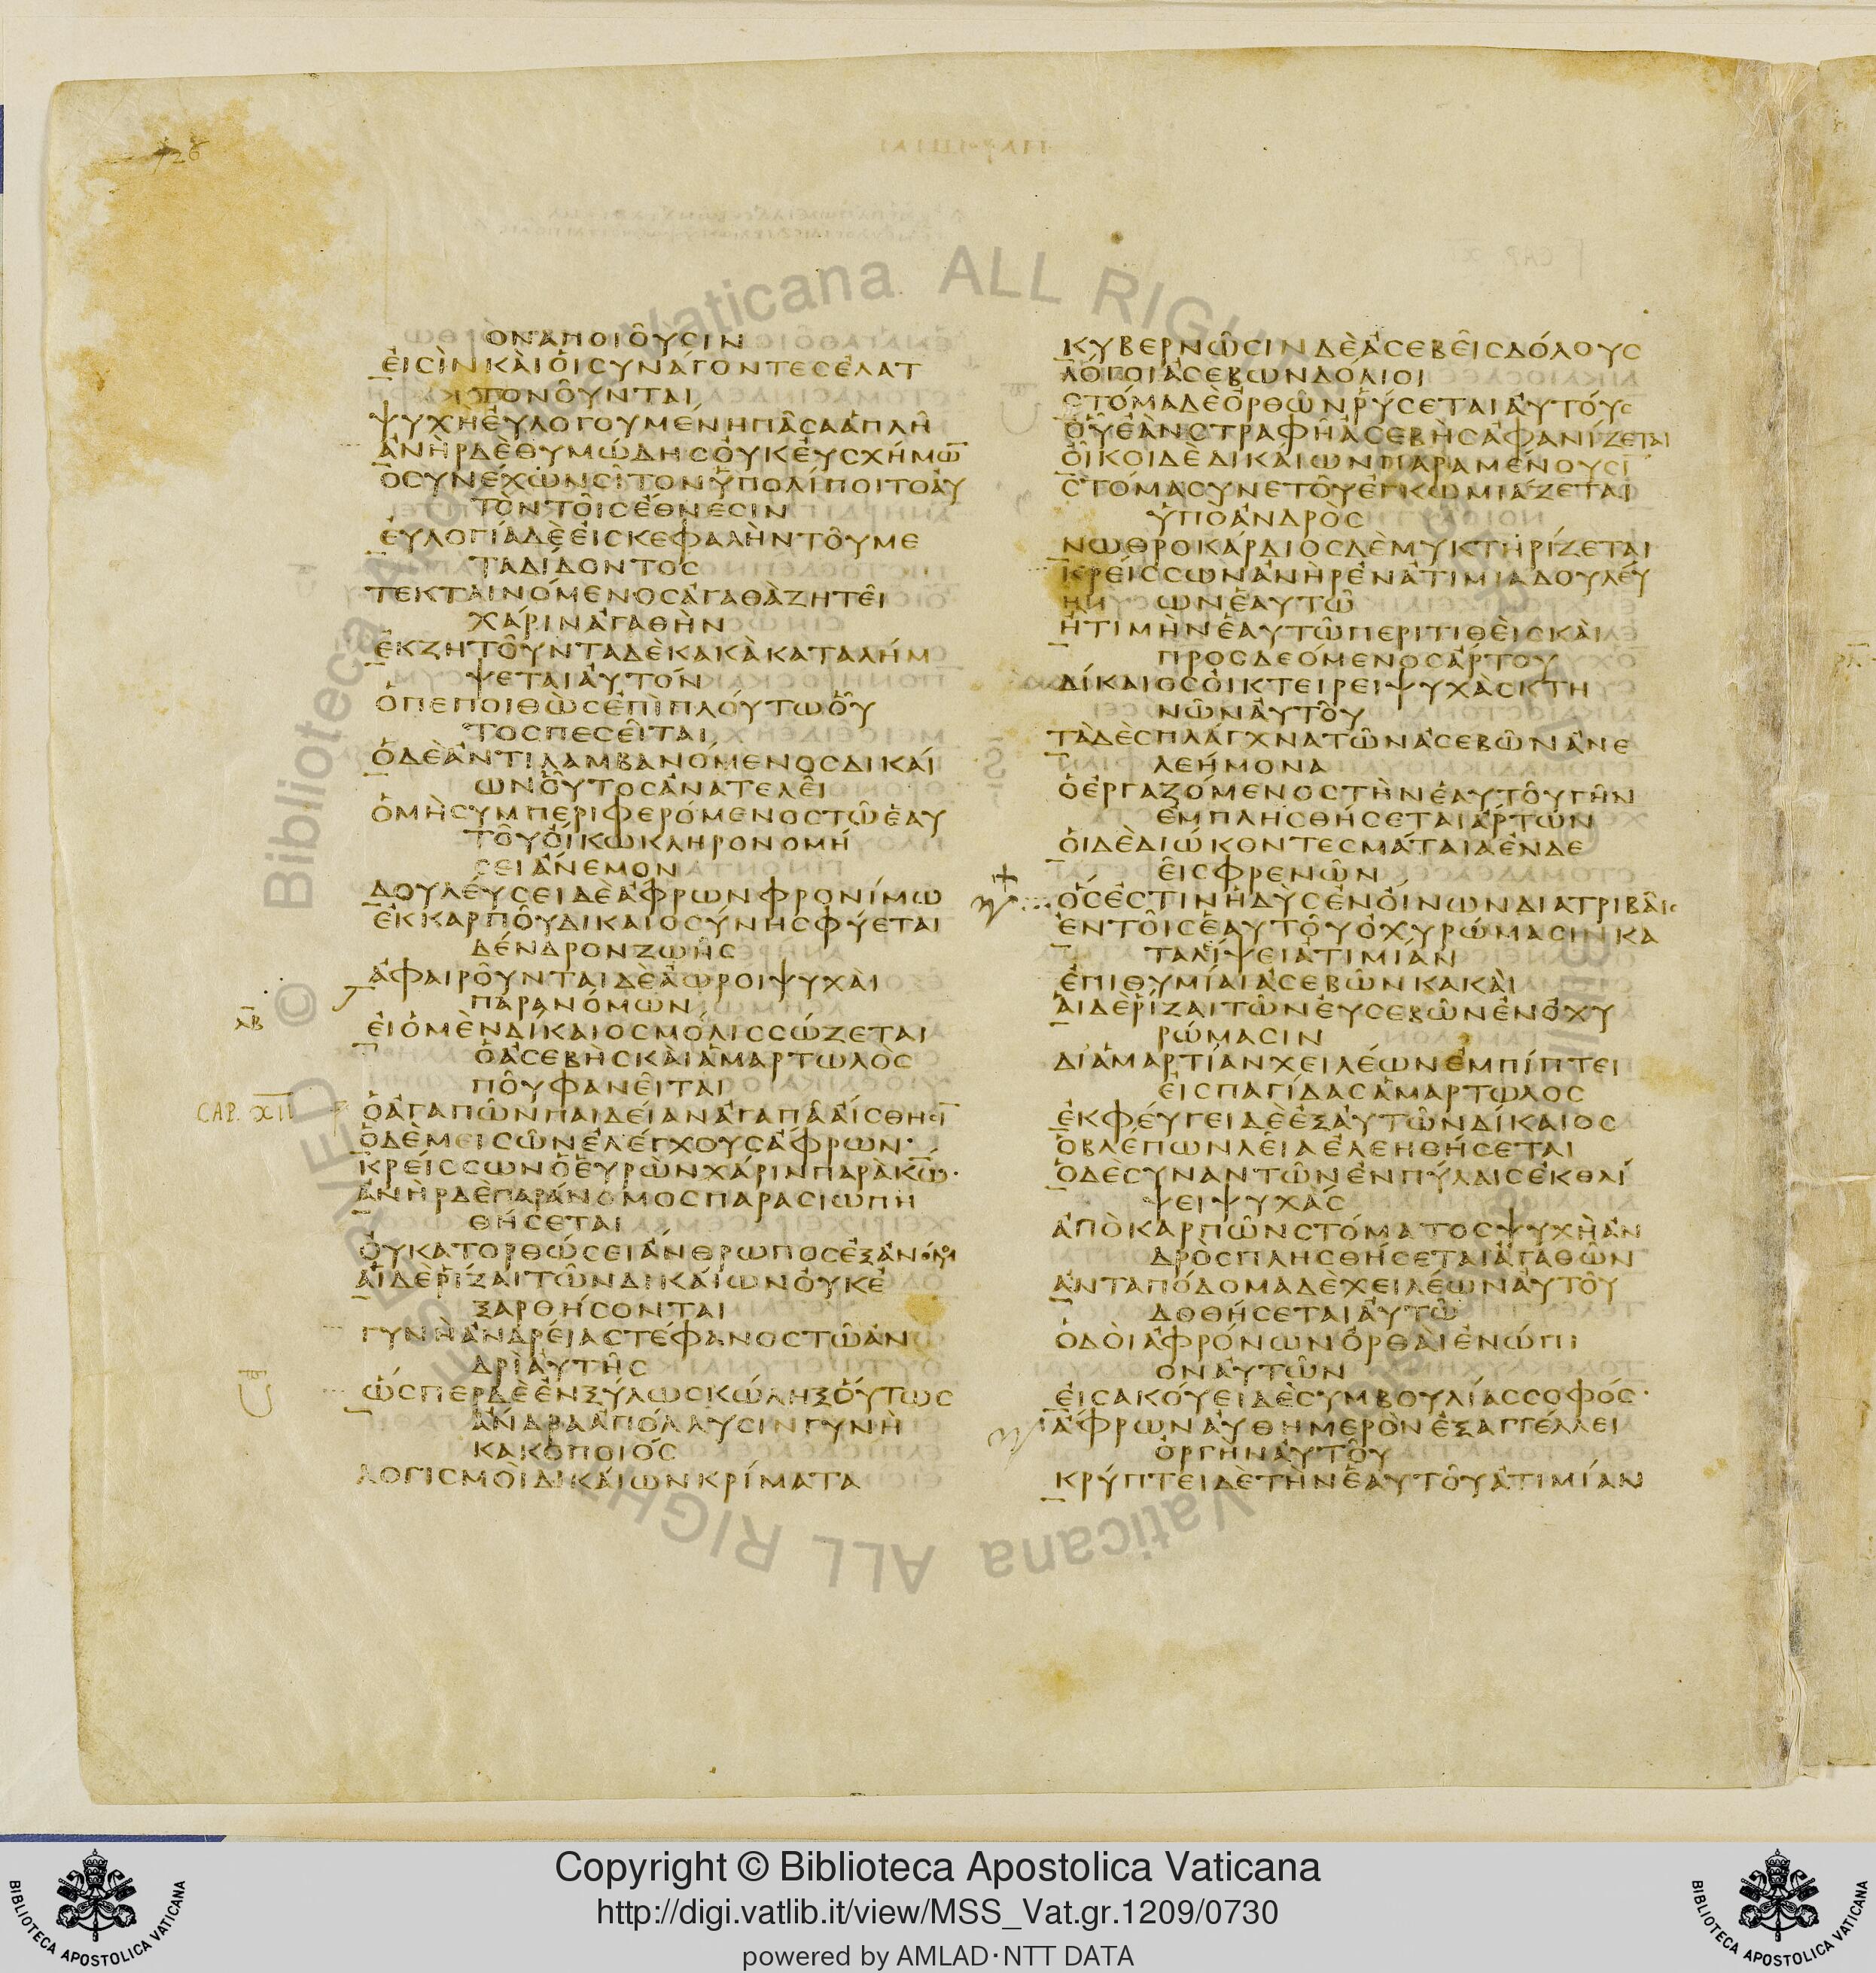 728
ΟΝΑΠΟΙΟΥϹΙΝ
ΕΙϹΙΝΚΑΙΟΙϹΥΝΑΓΟΝΤΕϹΕΛΑΤ
ΤΟΝΟΥΝΤΑΙ
ΨΥΧΗΕΥΛΟΓΟΥΜΕΝΗΠΑϹΑΑΠΛΗ
ΑΝΗΡΔΕΘΥΜΩΔΗϹΟΥΚΕΥϹΧΗΜΩ̅
ΟϹΥΝΕΧΩΝϹΙΤΟΝΥΠΟΛΙΠΟΙΤΟΑΥ
ΤΟΝΤΟΙϹΕΘΝΕϹΙΝ
ΕΥΛΟΓΙΑΔΕΕΙϹΚΕΦΑΛΗΝΤΟΥΜΕ
ΤΑΔΙΔΟΝΤΟϹ
ΤΕΚΤΑΙΝΟΜΕΝΟϹΑΓΑΘΑΖΗΤΕΙ
ΧΑΡΙΝΑΓΑΘΗΝ
ΕΚΖΗΤΟΥΝΤΑΔΕΚΑΚΑΚΑΤΑΛΗΜ
ΨΕΤΑΙΑΥΤΟΝ
ΟΠΕΠΟΙΘΩϹΕΠΙΠΛΟΥΤΩΟΥ
ΤΟϹΠΕϹΕΙΤΑΙ
ΟΔΕΑΝΤΙΛΑΜΒΑΝΟΜΕΝΟϹΔΙΚΑΙ
ΩΝΟΥΤΟϹΑΝΑΤΕΛΕΙ
ΟΜΗϹΥΜΠΕΡΙΦΕΡΟΜΕΝΟϹΤΩΕΑΥ
ΤΟΥΟΙΚΩΚΛΗΡΟΝΟΜΗ
ϹΕΙΑΝΕΜΟΝ
ΔΟΥΛΕΥϹΕΙΔΕΑΦΡΩΝΦΡΟΝΙΜΩ
ΕΚΚΑΡΠΟΥΔΙΚΑΙΟϹΥΝΗϹΦΥΕΤΑΙ
ΔΕΝΔΡΟΝΖΩΗϹ
ΑΦΑΙΡΟΥΝΤΑΙΔΕΑΩΡΟΙΨΥΧΑΙ
ΠΑΡΑΝΟΜΩΝ
ΕΙΟΜΕΝΔΙΚΑΙΟϹΜΟΛΙϹϹΩΖΕΤΑΙ
ΟΑϹΕΒΗϹΚΑΙΑΜΑΡΤΩΛΟϹ
ΠΟΥΦΑΝΕΙΤΑΙ
CAP. XII ΟΑΓΑΠΩΝΠΑΙΔΕΙΑΝΑΓΑΠΑΑΙϹΘΗϹΙ̅
ΟΔΕΜΕΙϹΩΝΕΛΕΓΧΟΥϹΑΦΡΩΝ·
ΚΡΕΙϹϹΩΝΟΕΥΡΩΝΧΑΡΙΝΠΑΡΑΚ̅Ω̅·
ΑΝΗΡΔΕΠΑΡΑΝΟΜΟϹΠΑΡΑϹΙΩΠΗ
ΘΗϹΕΤΑΙ
ΟΥΚΑΤΟΡΘΩϹΕΙΑΝΘΡΩΠΟϹΕΞΑΝΟΜΟΥ
ΑΙΔΕΡΙΖΑΙΤΩΝΔΙΚΑΙΩΝΟΥΚΕ
ΞΑΡΘΗϹΟΝΤΑΙ
ΓΥΝΗΑΝΔΡΕΙΑϹΤΕΦΑΝΟϹΤΩΑΝ
ΔΡΙΑΥΤΗϹ
ΩϹΠΕΡΔΕΕΝΞΥΛΩϹΚΩΛΗΞΟΥΤΩϹ
ΑΝΔΡΑΑΠΟΛΛΥϹΙΝΓΥΝΗ
ΚΑΚΟΠΟΙΟϹ
ΛΟΓΙϹΜΟΙΔΙΚΑΙΩΝΚΡΙΜΑΤΑ
ΚΥΒΕΡΝΩϹΙΝΔΕΑϹΕΒΕΙϹΔΟΛΟΥϹ
ΛΟΓΟΙΑϹΕΒΩΝΔΟΛΙΟΙ
ϹΤΟΜΑΔΕΟΡΘΩΝΡΥϹΕΤΑΙΑΥΤΟΥϹ
ΟΥΕΑΝϹΤΡΑΦΗΑϹΕΒΗϹΑΦΑΝΙΖΕΤΑΙ
ΟΙΚΟΙΔΕΔΙΚΑΙΩΝΠΑΡΑΜΕΝΟΥϹΙ̅
ϹΤΟΜΑϹΥΝΕΤΟΥΕΓΚΩΜΙΑΖΕΤΑΙ
ΥΠΟΑΝΔΡΟϹ
ΝΩΘΡΟΚΑΡΔΙΟϹΔΕΜΥΚΤΗΡΙΖΕΤΑΙ
ΚΡΕΙϹϹΩΝΑΝΗΡΕΝΑΤΙΜΙΑΔΟΥΛΕΥ
ΩΝΕΑΥΤΩ
ΗΤΙΜΗΝΕΑΥΤΩΠΕΡΙΤΙΘΕΙϹΚΑΙ
ΠΡΟϹΔΕΟΜΕΝΟϹΑΡΤΟΥ
ΔΙΚΑΙΟϹΟΙΚΤΕΙΡΕΙΨΥΧΑϹΚΤΗ
ΝΩΝΑΥΤΟΥ
ΤΑΔΕϹΠΛΑΓΧΝΑΤΩΝΑϹΕΒΩΝΑΝΕ
ΛΕΗΜΟΝΑ
ΟΕΡΓΑΖΟΜΕΝΟϹΤΗΝΕΑΥΤΟΥΓΗΝ
ΕΜΠΛΗϹΘΗϹΕΤΑΙΑΡΤΩΝ
ΟΙΔΕΔΙΩΚΟΝΤΕϹΜΑΤΑΙΑΕΝΔΕ
ΕΙϹΦΡΕΝΩΝ
ΟϹΕϹΤΙΝΗΔΥϹΕΝΟΙΝΩΝΔΙΑΤΡΙΒΑΙϹ
ΕΝΤΟΙϹΕΑΥΤΟΥΟΧΥΡΩΜΑϹΙΝΚΑ
ΤΑΛΙΨΕΙΑΤΙΜΙΑΝ
ΕΠΙΘΥΜΙΑΙΑϹΕΒΩΝΚΑΚΑΙ
ΑΙΔΕΡΙΖΑΙΤΩΝΕΥϹΕΒΩΝΕΝΟΧΥ
ΡΩΜΑϹΙΝ
ΔΙΑΜΑΡΤΙΑΝΧΕΙΛΕΩΝΕΜΠΙΠΤΕΙ
ΕΙϹΠΑΓΙΔΑϹΑΜΑΡΤΩΛΟϹ
ΕΚΦΕΥΓΕΙΔΕΕΞΑΥΤΩΝΔΙΚΑΙΟϹ
ΟΒΛΕΠΩΝΛΕΙΑΕΛΕΗΘΗϹΕΤΑΙ
ΟΔΕϹΥΝΑΝΤΩΝΕΝΠΥΛΑΙϹΕΚΘΛΙ
ΨΕΙΨΥΧΑϹ
ΑΠΟΚΑΡΠΩΝϹΤΟΜΑΤΟϹΨΥΧΗΑΝ
ΔΡΟϹΠΛΗϹΘΗϹΕΤΑΙΑΓΑΘΩΝ
ΑΝΤΑΠΟΔΟΜΑΔΕΧΕΙΛΕΩΝΑΥΤΟΥ
ΔΟΘΗϹΕΤΑΙΑΥΤΩ
ΟΔΟΙΑΦΡΟΝΩΝΟΡΘΑΙΕΝΩΠΙ
ΟΝΑΥΤΩΝ
ΕΙϹΑΚΟΥΕΙΔΕϹΥΜΒΟΥΛΙΑϹϹΟΦΟϹ·
ΑΦΡΩΝΑΥΘΗΜΕΡΟΝΕΞΑΓΓΕΛΛΕΙ
ΟΡΓΗΝΑΥΤΟΥ
ΚΡΥΠΤΕΙΔΕΤΗΝΕΑΥΤΟΥΑΤΙΜΙΑΝ
Copyright © Biblioteca Apostolica Vaticana
http://digi.vatlib.it/view/MSS_Vat.gr.1209/0730
powered by AMLAD·NTT DATA
BIBLIOTECA APOSTOLICA VATICANA
BIBLIOTECA APOSTOLICA VATICANA